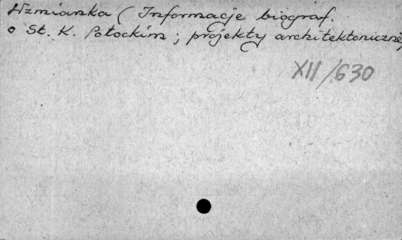 Wzmianka (Informacje biograf.
o St. K. Potockim; projekty architektoniczne)
XII/630